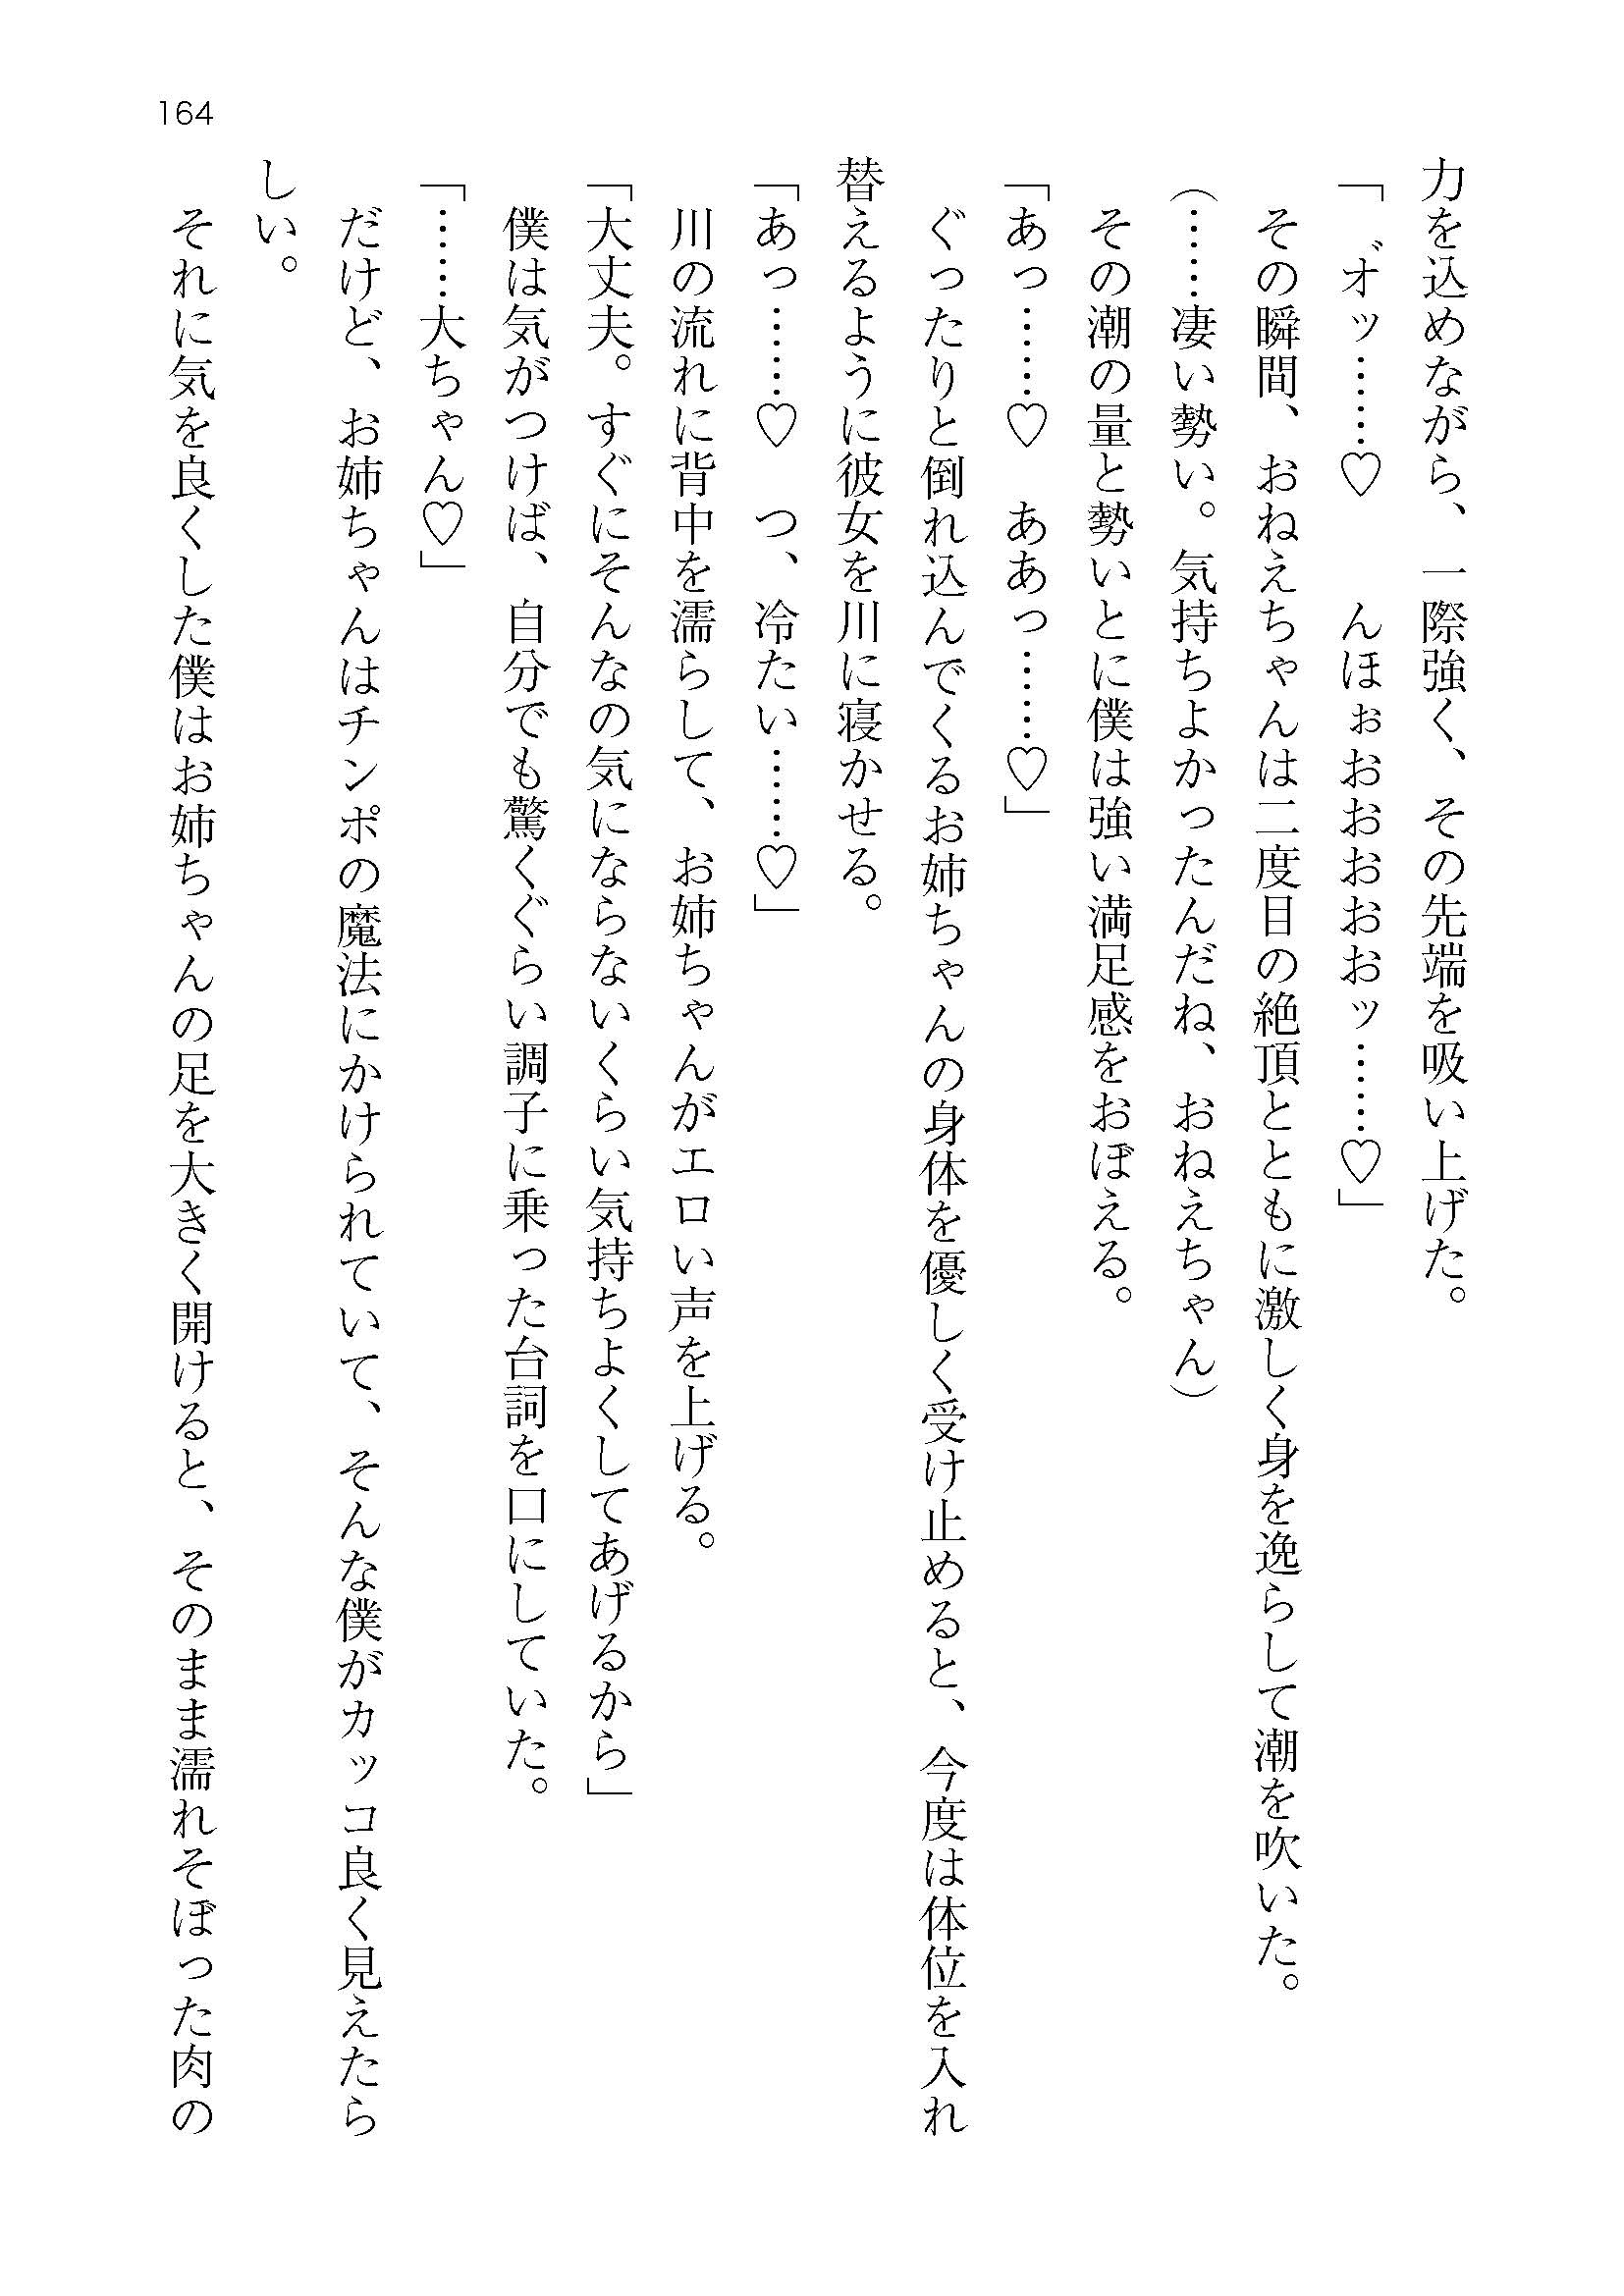 164
力を込めながら、一際強く、その先端を吸い上げた。
「゛オッ……♡　んほぉおおおおおッ……♡」
その瞬間、おねえちゃんは二度目の絶頂とともに激しく身を逸らして潮を吹いた。
（……凄い勢い。気持ちよかったんだね、おねえちゃん）
その潮の量と勢いとに僕は強い満足感をおぼえる。
「あっ……♡　ああっ……♡」
ぐったりと倒れ込んでくるお姉ちゃんの身体を優しく受け止めると、今度は体位を入れ
替えるように彼女を川に寝かせる。
「あっ……♡　つ、冷たい……♡」
川の流れに背中を濡らして、お姉ちゃんがエロい声を上げる。
「大丈夫。すぐにそんなの気にならないくらい気持ちよくしてあげるから」
僕は気がつけば、自分でも驚くぐらい調子に乗った台詞を口にしていた。
「……大ちゃん♡」
だけど、お姉ちゃんはチンポの魔法にかけられていて、そんな僕がカッコ良く見えたら
しい。
それに気を良くした僕はお姉ちゃんの足を大きく開けると、そのまま濡れそぼった肉の